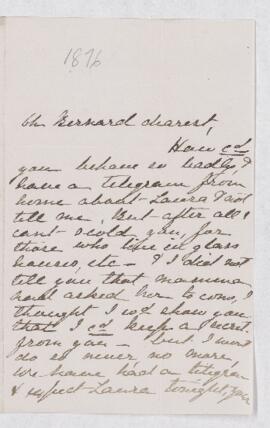 1876
Oh Bernard dearest,
How cd
you behave so badly, &
have a telegram from
home about Laura & not
tell me. But after all I
cant scold you, for
those who live in glass
houses, etc - & I did not
tell you that mamma
had asked her to come, I
thought I wd show you
that I cd keep a secret
from you - but I must
do so never no more,
We have had a telegram
& expect Laura tonight, you